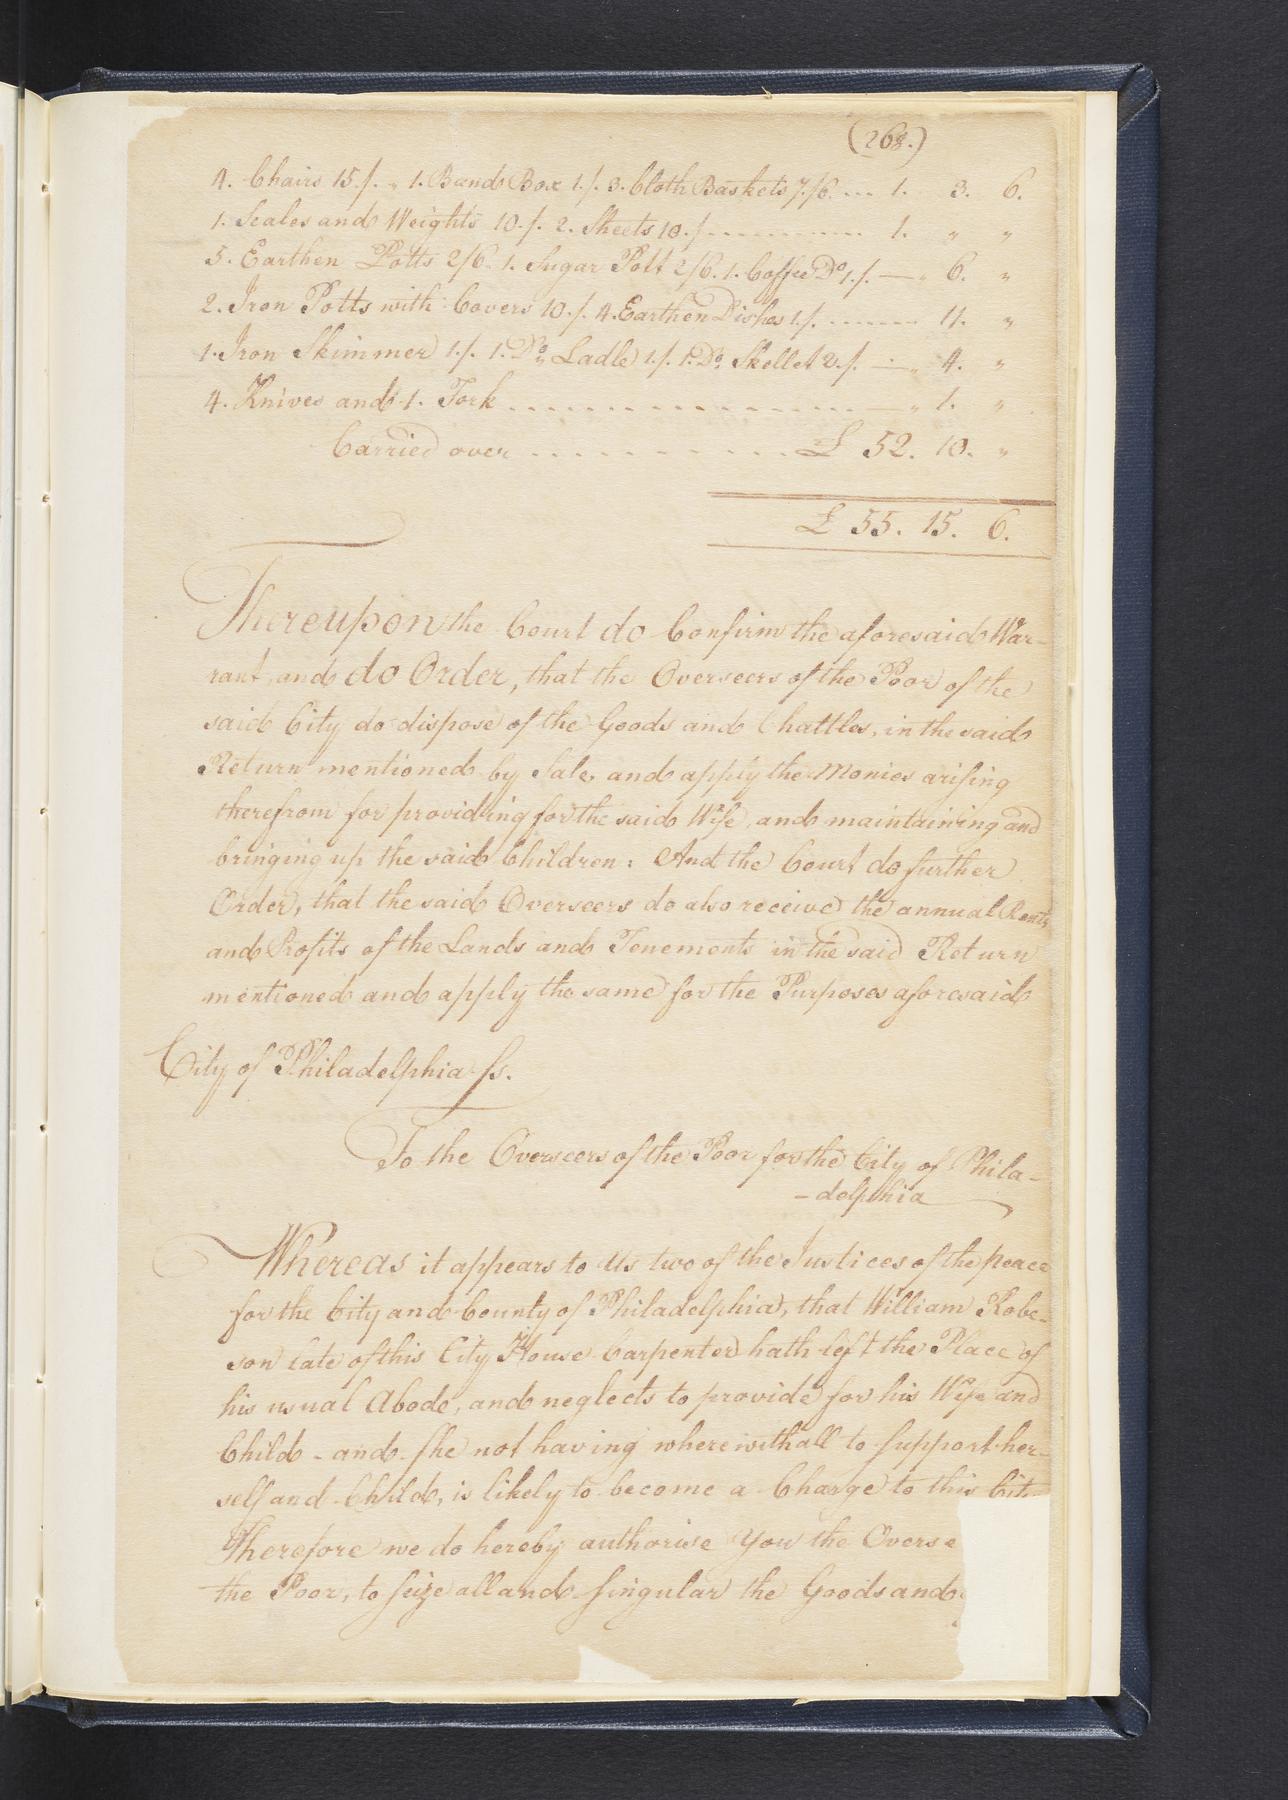 (268.)
4. Chairs 15./. „ 1. Band Box 1./. 3. Cloth Baskets 7./6. ... 1. 3. 6.
1. Scales and Weights 10./. 2. Sheets 10./. ------------ 1. „ „
5. Earthen Potts 2/6. 1. Sugar Pott 2/6. 1. Coffee Do 1./. — „ 6. „
2. Iron Potts with Covers 10./. 4. Earthen Dishes 1./. -------- 11. „
1. Iron Skimmer 1./. 1. Do Ladle 1./. 1. Do Skellet 2./. — „ 4. „
4. Knives and 1. Fork ------------------ — „ 1. „
Carried over ----------- £ 52. 10. „
£ 55. 15. 6.
Thereupon the Court do Confirm the aforesaid War-
rant, and do Order, that the Overseers of the Poor of the
said City do dispose of the Goods and Chattles, in the said
Return mentioned by Sale, and apply the Monies arising
therefrom for providing for the said Wife, and maintaining and
bringing up the said Children: And the Court do further
Order, that the said Overseers do also receive the annual Rents
and Profits of the Lands and Tenements in the said Return
mentioned and apply the same for the Purposes aforesaid
City of Philadelphia ss.
To the Overseers of the Poor for the City of Phila-
-delphia
Whereas it appears to Us two of the Justices of the peace
for the City and County of Philadelphia, that William Robe-
son late of this City House Carpenter hath left the Place of
his usual Abode, and neglects to provide for his Wife and
Child - and she not having wherewithall to support her-
self and Child, is likely to become a Charge to this Cit
Therefore we do hereby authorise You the Overse
the Poor, to seize all and singular the Goods and